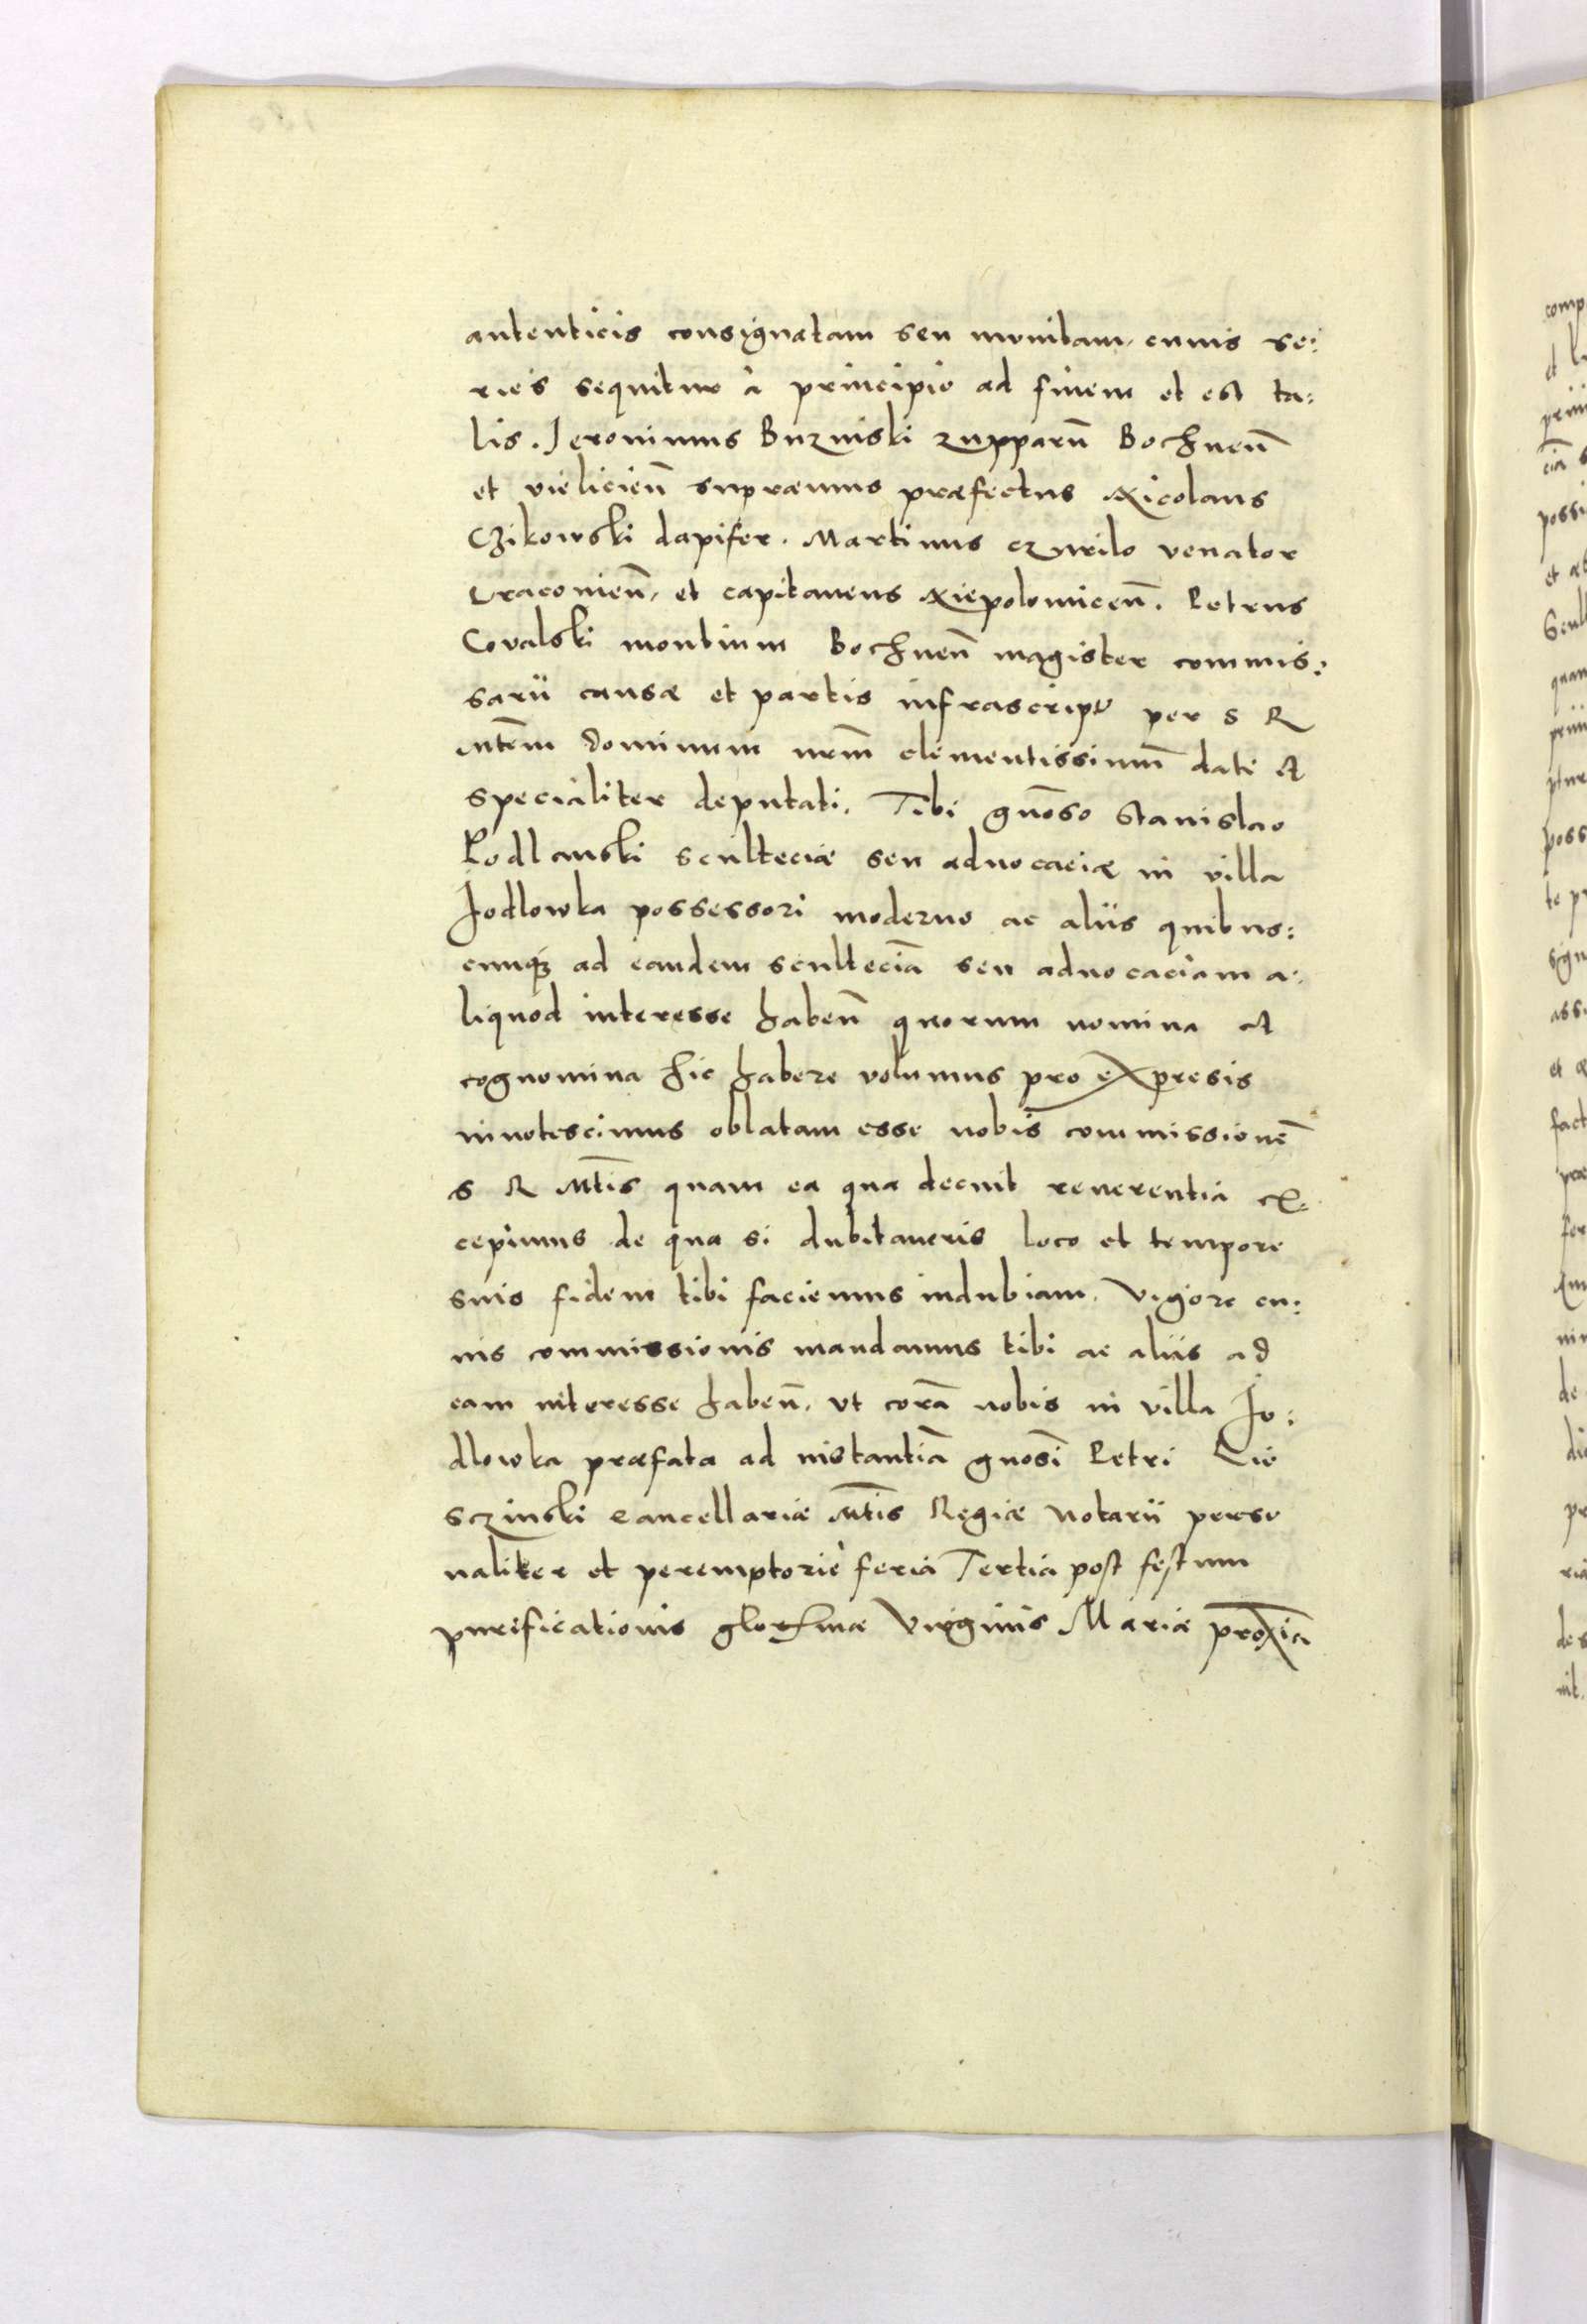 autenticis consignatam seu munitam, cuius se:
ries sequitur à principio ad finem et est ta:
lis. Jeronimus Buzniski zupparu᷉ Bochnen̄
et vielicien̄ supraemus praefectus Nicolaus
Czikowski dapifer. Martinus czurilo venator
Cracovien̄, et capitaneus Niepolomicen̄. Petrus
Covalski montium Bochnen̄ magister commis:
sarii causae et partis infrascript per S R
Mte̅m dominum nr̅m clementissimu̅ dati et
specialiter deputati. Tibi gn̅oso Stanislao
Podlanski scultetiae seu advocaciae in villa
Jodlowka possessori moderno ac aliis quibus:
cunq̃ ad eandem scultecia̅ seu advocaciam a:
liquod interesse haben̄ quorum nomina et
cognomina hic habere volumus pro expresis
innotescimus oblatam esse nobis commissione̅
S R Mt̅is quam ea qua decuit reverentia ex:
cepimus de qua si dubitaveris loco et tempore
suis fidem tibi faciemus indubiam. Vigore cu:
ius commissionis mandamus tibi ac aliis ad
eam interesse haben̄, ut cora̅ nobis in villa Jo:
dlowka praefata ad instantia̅ gnosi̅ Petri Lie
sczinski Cancellariae Mt̅is Regiae Notarii perso
naliter et peremptorie feria Tertia post festum
purificationis glor̅mae Virginis Mariae prox̅ia